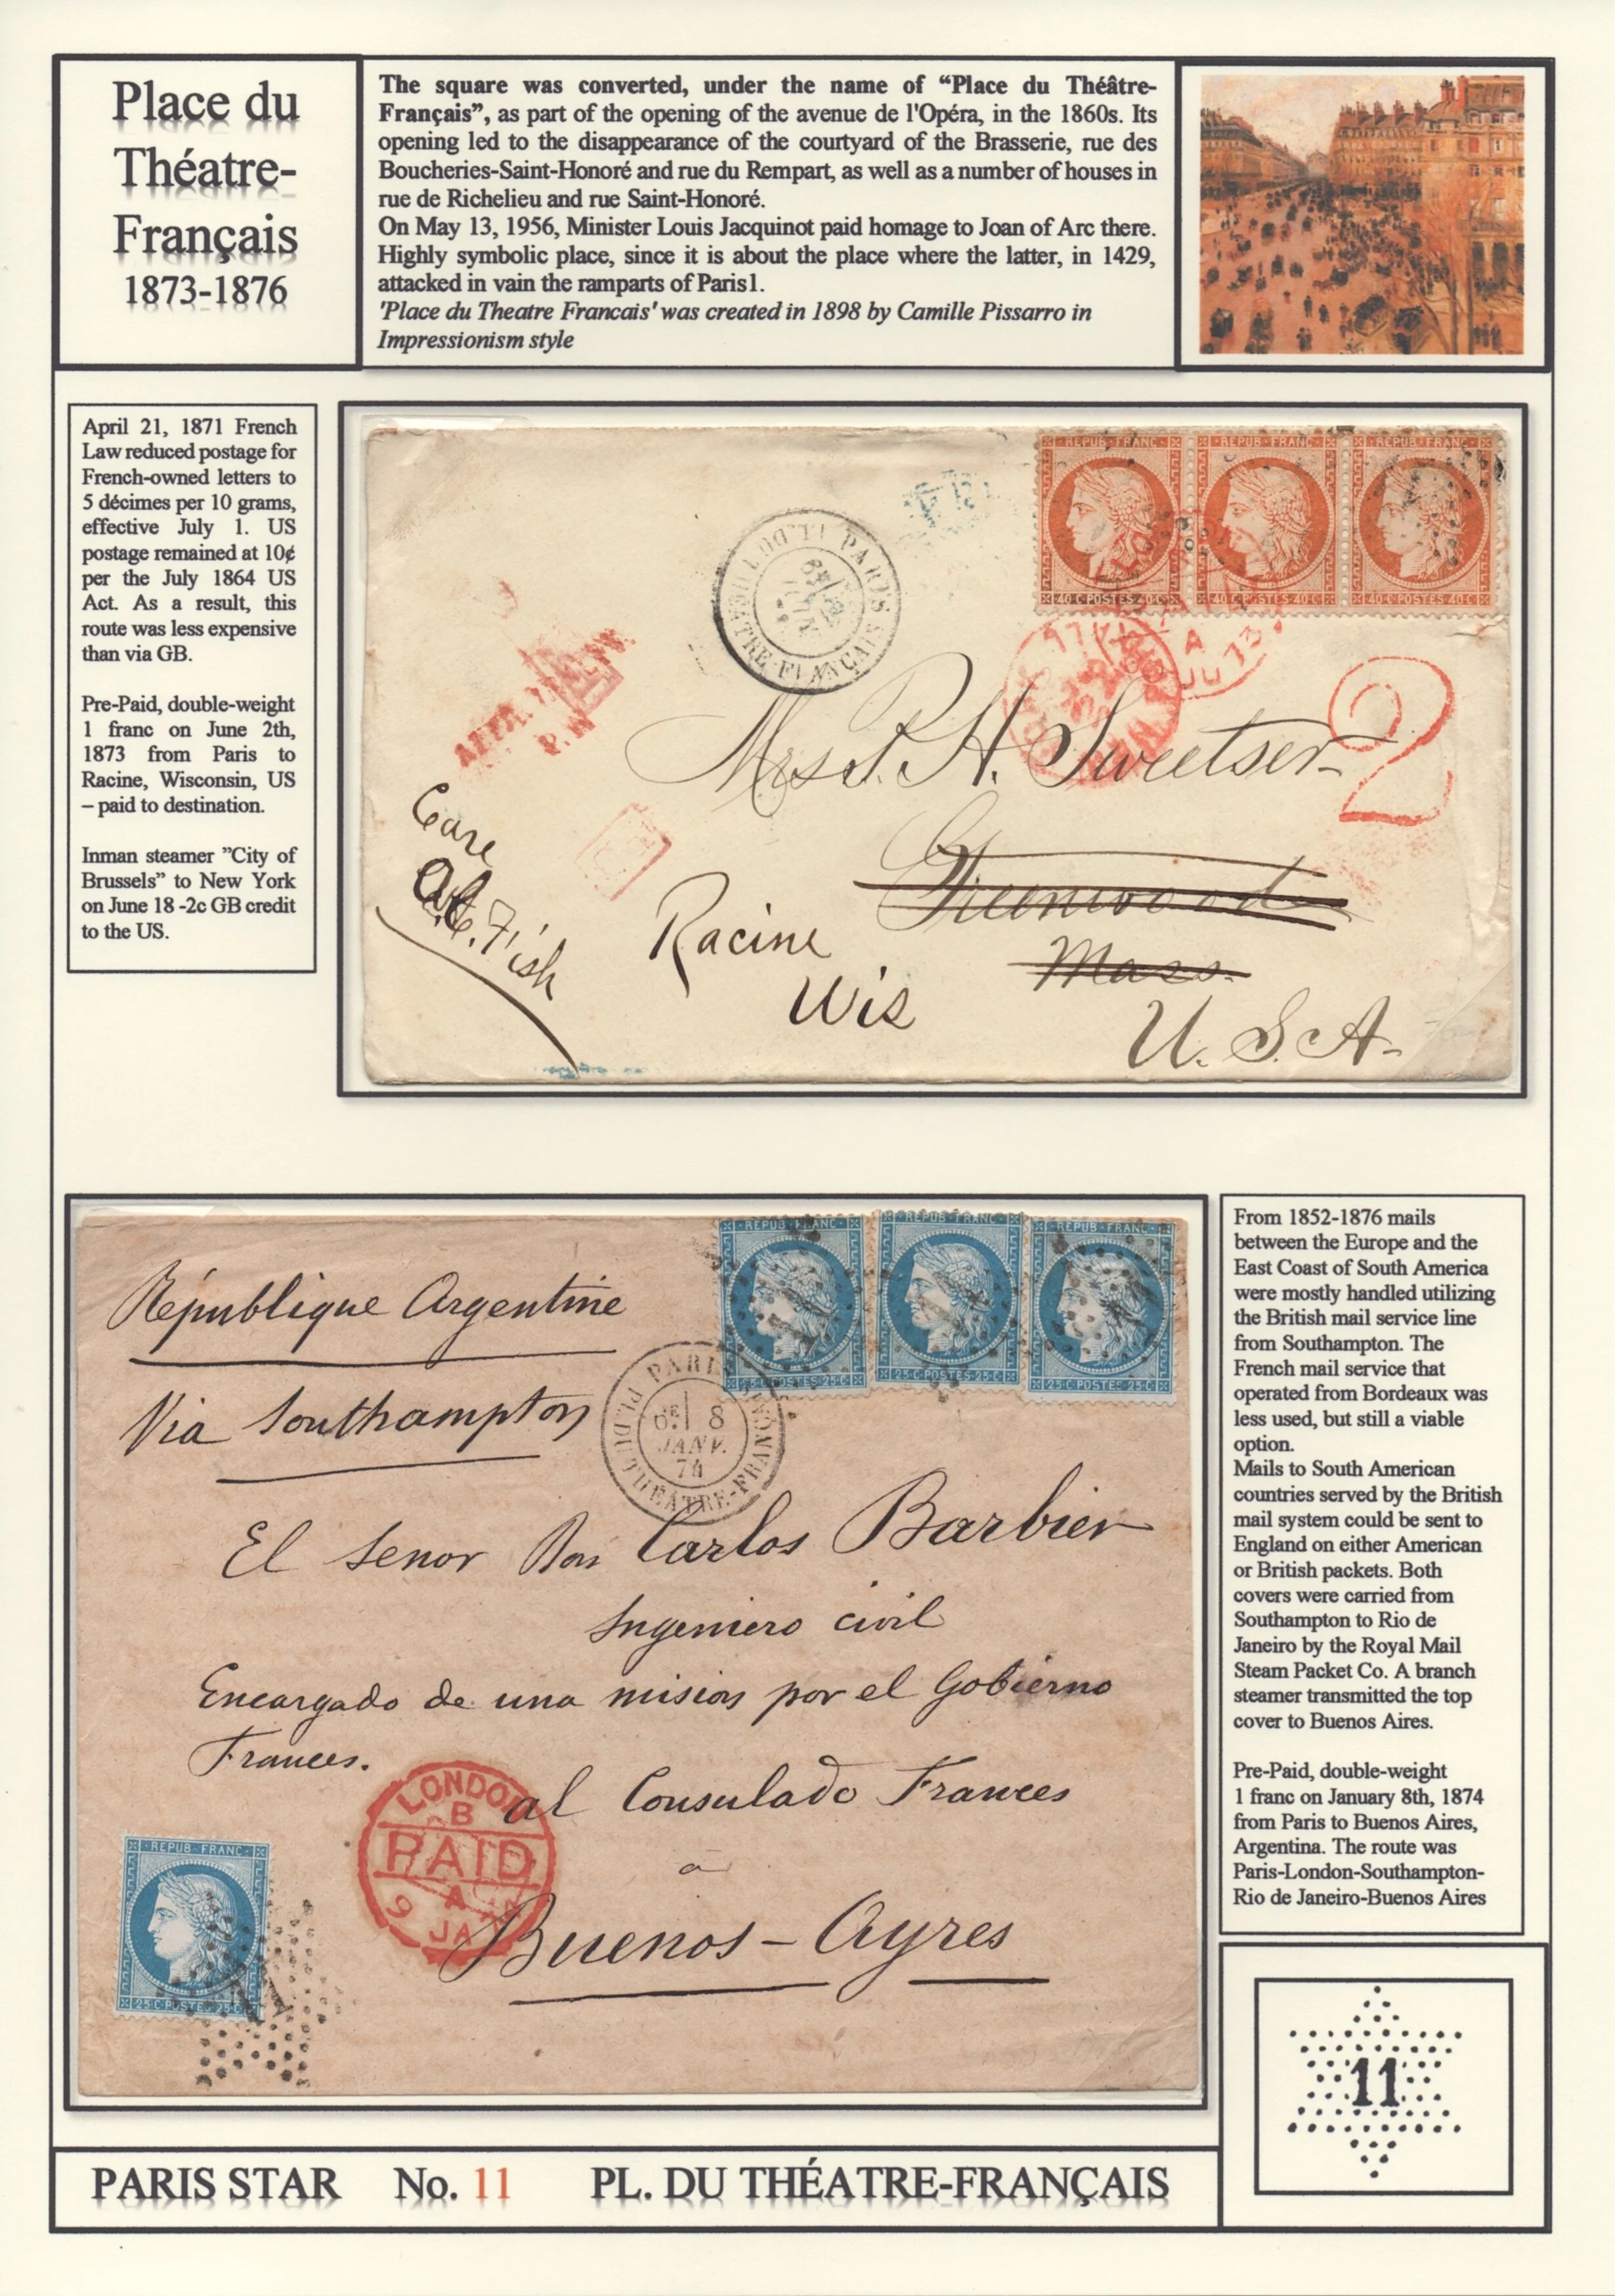 Place du
Théatre-
Français
1873-1876
The square was converted, under the name of “Place du Théâtre-
Français”, as part of the opening of the avenue de l'Opéra, in the 1860s. Its
opening led to the disappearance of the courtyard of the Brasserie, rue des
Boucheries-Saint-Honoré and rue du Rempart, as well as a number of houses in
rue de Richelieu and rue Saint-Honoré.
On May 13, 1956, Minister Louis Jacquinot paid homage to Joan of Arc there.
Highly symbolic place, since it is about the place where the latter, in 1429,
attacked in vain the ramparts of Paris1.
'Place du Theatre Francais' was created in 1898 by Camille Pissarro in
Impressionism style
April 21, 1871 French
Law reduced postage for
French-owned letters to
5 décimes per 10 grams,
effective July 1. US
postage remained at 10¢
per the July 1864 US
Act. As a result, this
route was less expensive
than via GB.
Pre-Paid, double-weight
1 franc on June 2th,
1873 from Paris to
Racine, Wisconsin, US
– paid to destination.
Inman steamer ”City of
Brussels” to New York
on June 18 -2c GB credit
to the US.
REPUB·FRANC REPUB·FRANC REPUB·FRANC
40·C·POSTES·40·C 40·C·POSTES·40·C 40·C·POSTES·40·C
PARIS PL. DU THÉATRE-FRANÇAIS
A
JU 73
2
Mrs. P. H. Sweetser
Greenwood
Mass.
Care
Fish
Racine
Wis
U. S. A.
REPUB·FRANC REPUB·FRANC REPUB·FRANC
25·C·POSTES·25·C 25·C·POSTES·25·C 25·C·POSTES·25·C
République Argentine
Via Southampton
PARIS PL. DU THÉATRE-FRANÇAIS
8
JANV.
74
El Senor Don Carlos Barbier
Ingeniero civil
Encargado de una mision por el Gobierno
Frances.
al Consulado Frances
a
Buenos-Ayres
LONDON
B
PAID
A
9 JA
REPUB·FRANC
25·C·POSTES·25·C
From 1852-1876 mails
between the Europe and the
East Coast of South America
were mostly handled utilizing
the British mail service line
from Southampton. The
French mail service that
operated from Bordeaux was
less used, but still a viable
option.
Mails to South American
countries served by the British
mail system could be sent to
England on either American
or British packets. Both
covers were carried from
Southampton to Rio de
Janeiro by the Royal Mail
Steam Packet Co. A branch
steamer transmitted the top
cover to Buenos Aires.
Pre-Paid, double-weight
1 franc on January 8th, 1874
from Paris to Buenos Aires,
Argentina. The route was
Paris-London-Southampton-
Rio de Janeiro-Buenos Aires
11
PARIS STAR No. 11 PL. DU THÉATRE-FRANÇAIS